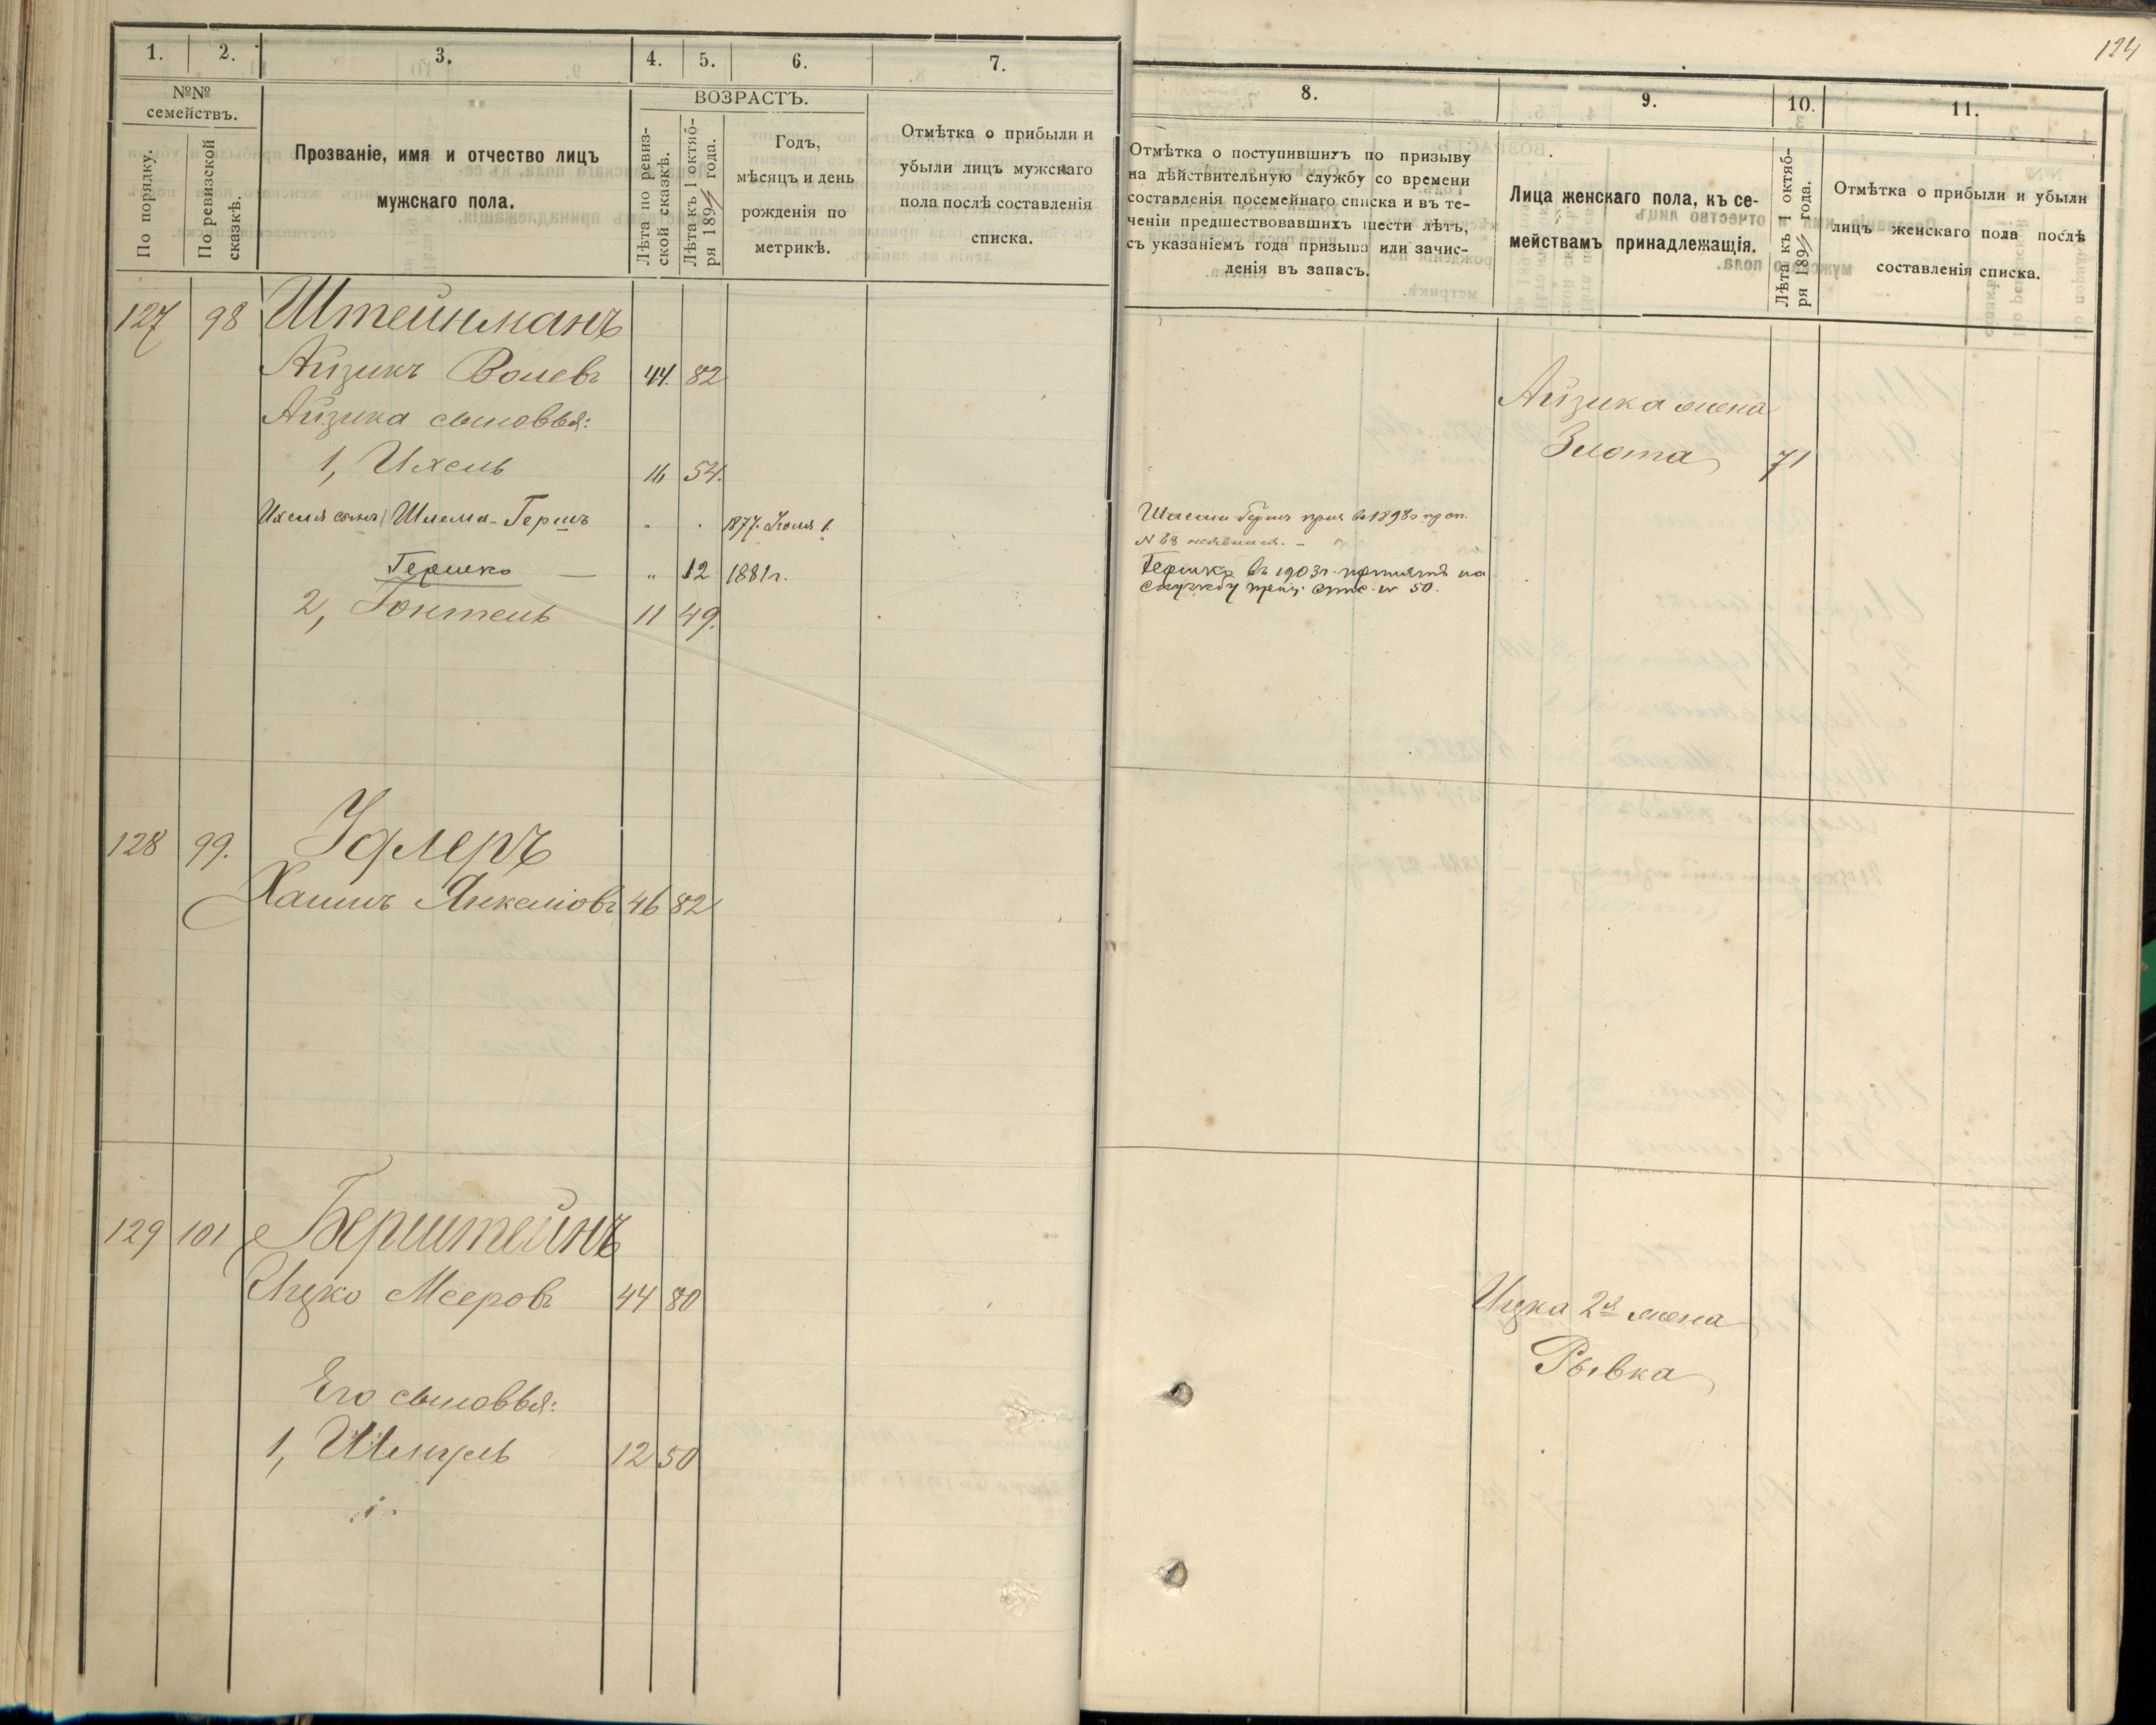 124
1. 2. 3. 4. 5. 6. 7.
№№ семействъ.
По порядку.
По ревизской сказкѣ.
Прозваніе, имя и отчество лицъ
мужскаго пола.
ВОЗРАСТЪ.
Лѣта по ревиз-
ской сказкѣ.
Лѣта къ 1 октяб-
ря 189 года.
Годъ,
мѣсяцъ и день
рожденія по
метрикѣ.
Отмѣтка о прибыли и
убыли лицъ мужскаго
пола послѣ составленія
списка.
127 98 Штейнманъ
Айзикъ Волевъ 44. 82
Айзика сыновья:
1, Ихель 16 54.
Ихеля сынъ Шлема-Гершъ " . 1877. Іюля 1.
Гершко — " 12 1881г.
2, 11 49.
128 99. Удлеръ
Хаимъ Янкелювъ 46 82
129 101 Берштейнъ
Ицко Мееровъ 44 80
Его сыновья:
1, Шмуль 12 50
8. 9. 10. 11.
Отмѣтка о поступившихъ по призыву
на дѣйствительную службу со времени
составленія посемейнаго списка и въ те-
ченіи предшествовавшихъ шести лѣтъ,
съ указаніемъ года призыва или зачис-
ленія въ запасъ.
Лица женскаго пола, къ се-
мействамъ принадлежащія.
Лѣта къ 1 октяб-
ря 189 года.
Отмѣтка о прибыли и убыли
лицъ женскаго пола послѣ
составленія списка.
Айзика жена
Злота 71
Гершъ въ 1898
N 68
Гершко въ 1903г. принятъ на
службу 50.
Ицка 2я жена
Рывка